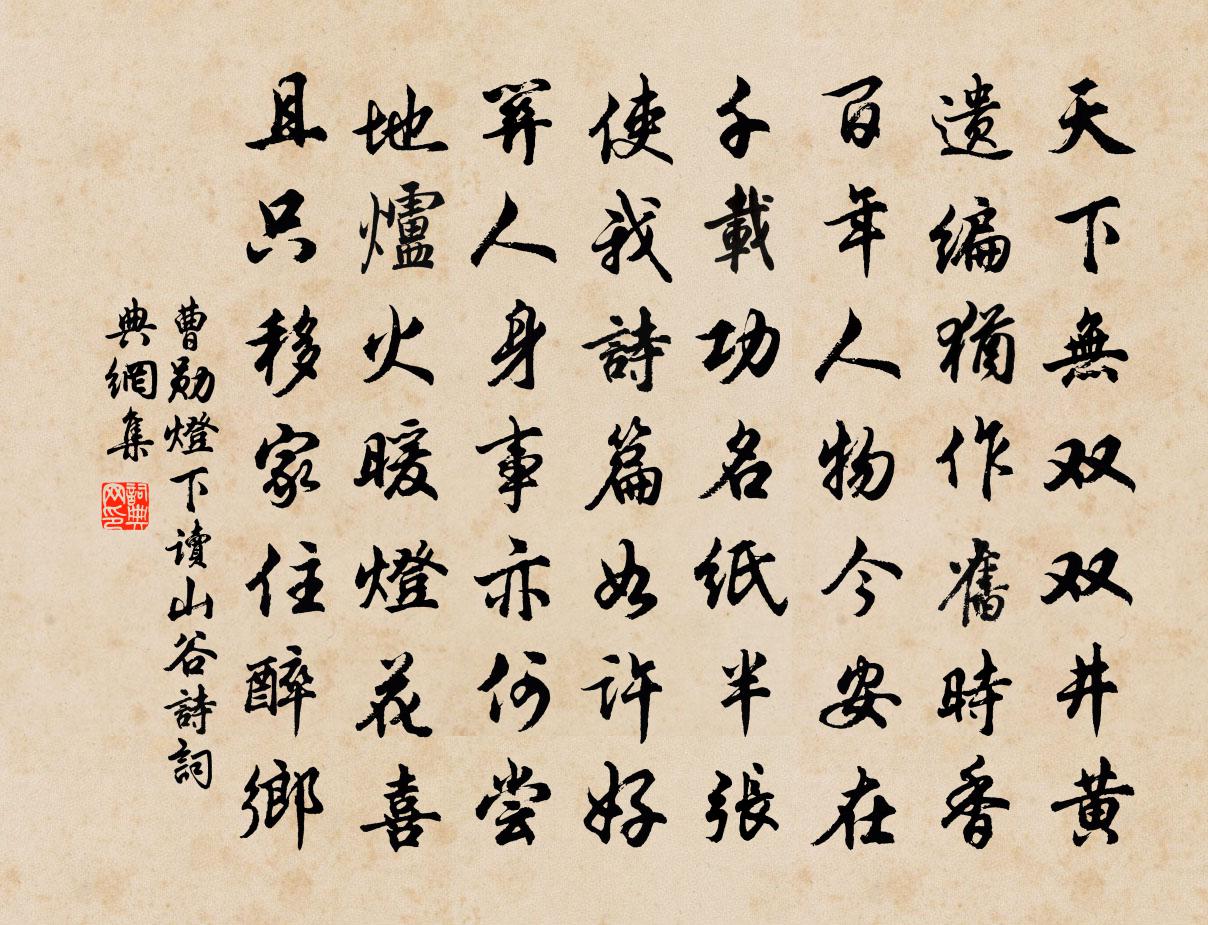 天下無双双井黄
遗编猶作舊時香
百年人物今安在
千載功名纸半張
使我詩篇如許好
关人身事亦何尝
地爐火暖燈花喜
且只移家住醉鄉
曹勋燈下讀山谷詩詞
典網集
詞典网印